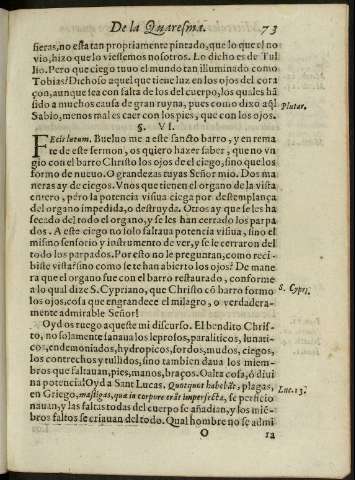 De la Quaresma. 73
sieras, no esta tan propriamente pintado, que lo que el no
vio, hizo que lo viessemos nosotros. Lo dicho es de Tul
lio. Pero que ciego tuuo el mundo tan illuminado como
Tobias? Dichoso aquel que tiene luz en los ojos del cora
çon, aunque sea con falta de los del cuerpo, los quales hã
sido a muchos causa de gran ruyna, pues como dixo aq̃l
Sabio, menos mal es caer con los pies, que con los ojos.
Plutar.
§. VI.
FEcit lutum. Bueluo me a este sancto barro, y en rema
te de este sermon, os quiero hazer saber, que no vn
gio con el barro Christo los ojos de el ciego, sino que los
formo de nueuo. O grandezas tuyas Señor mio. Dos ma
neras ay de ciegos. Vnos que tienen el organo de la vista
entero, pero la potencia visiua ciega por destemplança
del organo impedida, o destruyda. Otros ay que se les ha
secado del todo el organo, y se les han cerrado los parpa
dos. A este ciego no solo faltaua potencia visiua, sino el
mismo sensorio y instrumento de ver, y se le cerraron del
todo los parpados. Por esto no le preguntan, como reci
biste vista? sino como se te han abierto los ojos? De mane
ra que el organo fue con el barro restaurado, conforme
a lo qual dize S. Cypriano, que Christo cõ barro formo
los ojos, cosa que engrandece el milagro, o verdadera-
mente admirable Señor!
S. Cypri.
Oyd os ruego aqueste mi discurso. El bendito Chris-
to, no solamente sanaua los leprosos, paraliticos, lunati-
cos, endemoniados, hydropicos, sordos, mudos, ciegos,
los contrechos y tullidos, sino tambien daua los miem-
bros que faltauan, pies, manos, braços. O alta cosa, ó diui
na potencia! Oyd a Sant Lucas. Quotquot habebãt, plagas,
en Griego, mastigas, quæ in corpore erãt imperfecta, se perficio
nauan, y las faltas todas del cuerpo se añadian, y los miẽ-
bros faltos se criauan del todo. Qual hombre no se admi
Luc. 13.
O
ra